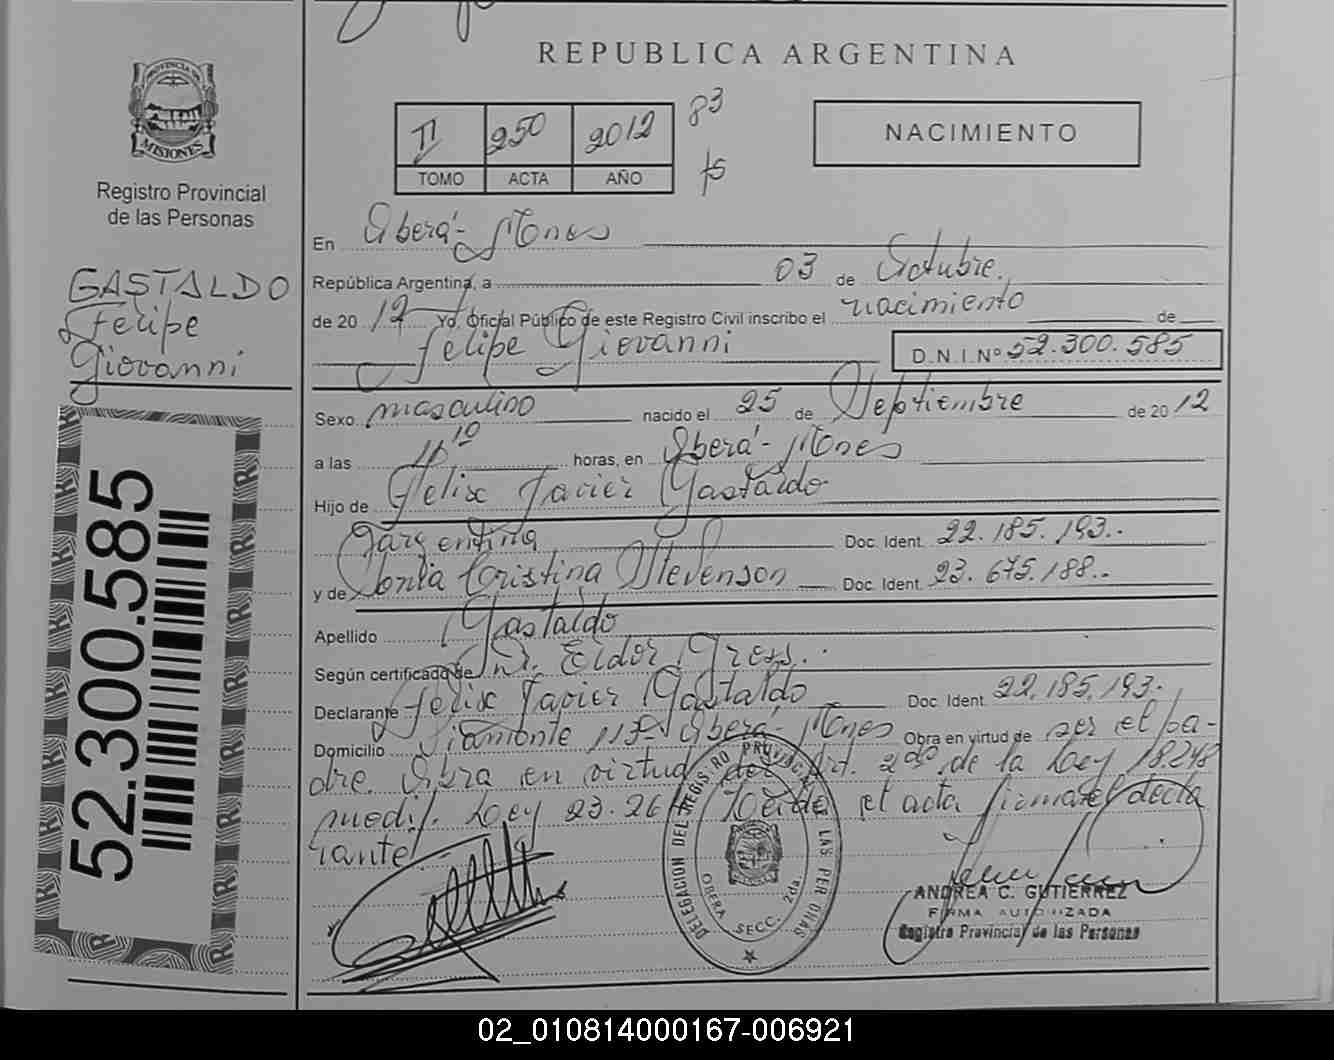 REPUBLICA ARGENTINA
PROVINCIA DE
MISIONES
Registro Provincial
de las Personas
II 250 2012 83
TOMO ACTA AÑO fs
NACIMIENTO
GASTALDO
Felipe
Giovanni
52.300.585
En Oberá - Mnes
República Argentina, a 03 de Octubre.
de 2012 Yo, Oficial Público de este Registro Civil inscribo el nacimiento de
Felipe Giovanni D.N.I.Nº 52.300.585
Sexo masculino nacido el 25 de Septiembre de 2012
a las 11 10 horas, en Oberá - Mnes
Hijo de Felix Javier Gastaldo
argentina Doc. Ident. 22.185.193.-
y de Sonia Cristina Stevenson Doc. Ident. 23.675.188.-
Apellido Gastaldo
Según certificado de Dr. Eldor Gross.
Declarante Felix Javier Gastaldo Doc. Ident. 22.185.193.
Domicilio Diamante 113 - Oberá - Mnes Obra en virtud de ser el pa-
dre. Obra en virtud del Art. 2do. de la Ley 18.248
modif. Ley 23.26 Leída el acta firma el decla
rante
DELEGACION DEL REGISTRO PROVINCIAL DE LAS PERSONAS
OBERA SECC. 2da.
ANDREA C. GUTIERREZ
FIRMA AUTORIZADA
Registro Provincial de las Personas
02_010814000167-006921